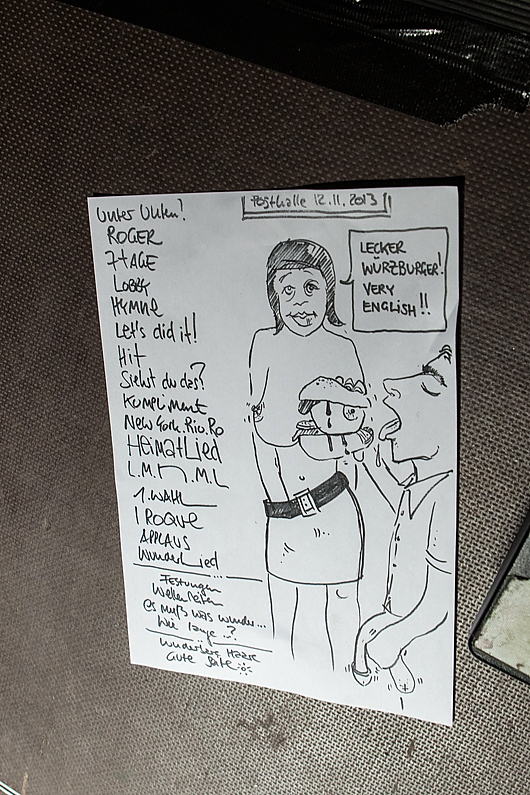 Posthalle 12.11.2013
Unter Unken?
ROGER
7 TAGE
LOBEK
HYMNE
Let's did it!
Hit
Siehst du das?
Kompliment
New York. Rio. Ro
HEIMATLIED
L.M.N.M.L
1. WAHL
1 ROQUE
APPLAUS
WUNDERLIED
Festungen
Wellenreiten
es muß was wunder...
Wie lange...?
Wunderbare
Gute Seite
LECKER
WÜRZBURGER!
VERY
ENGLISH!!